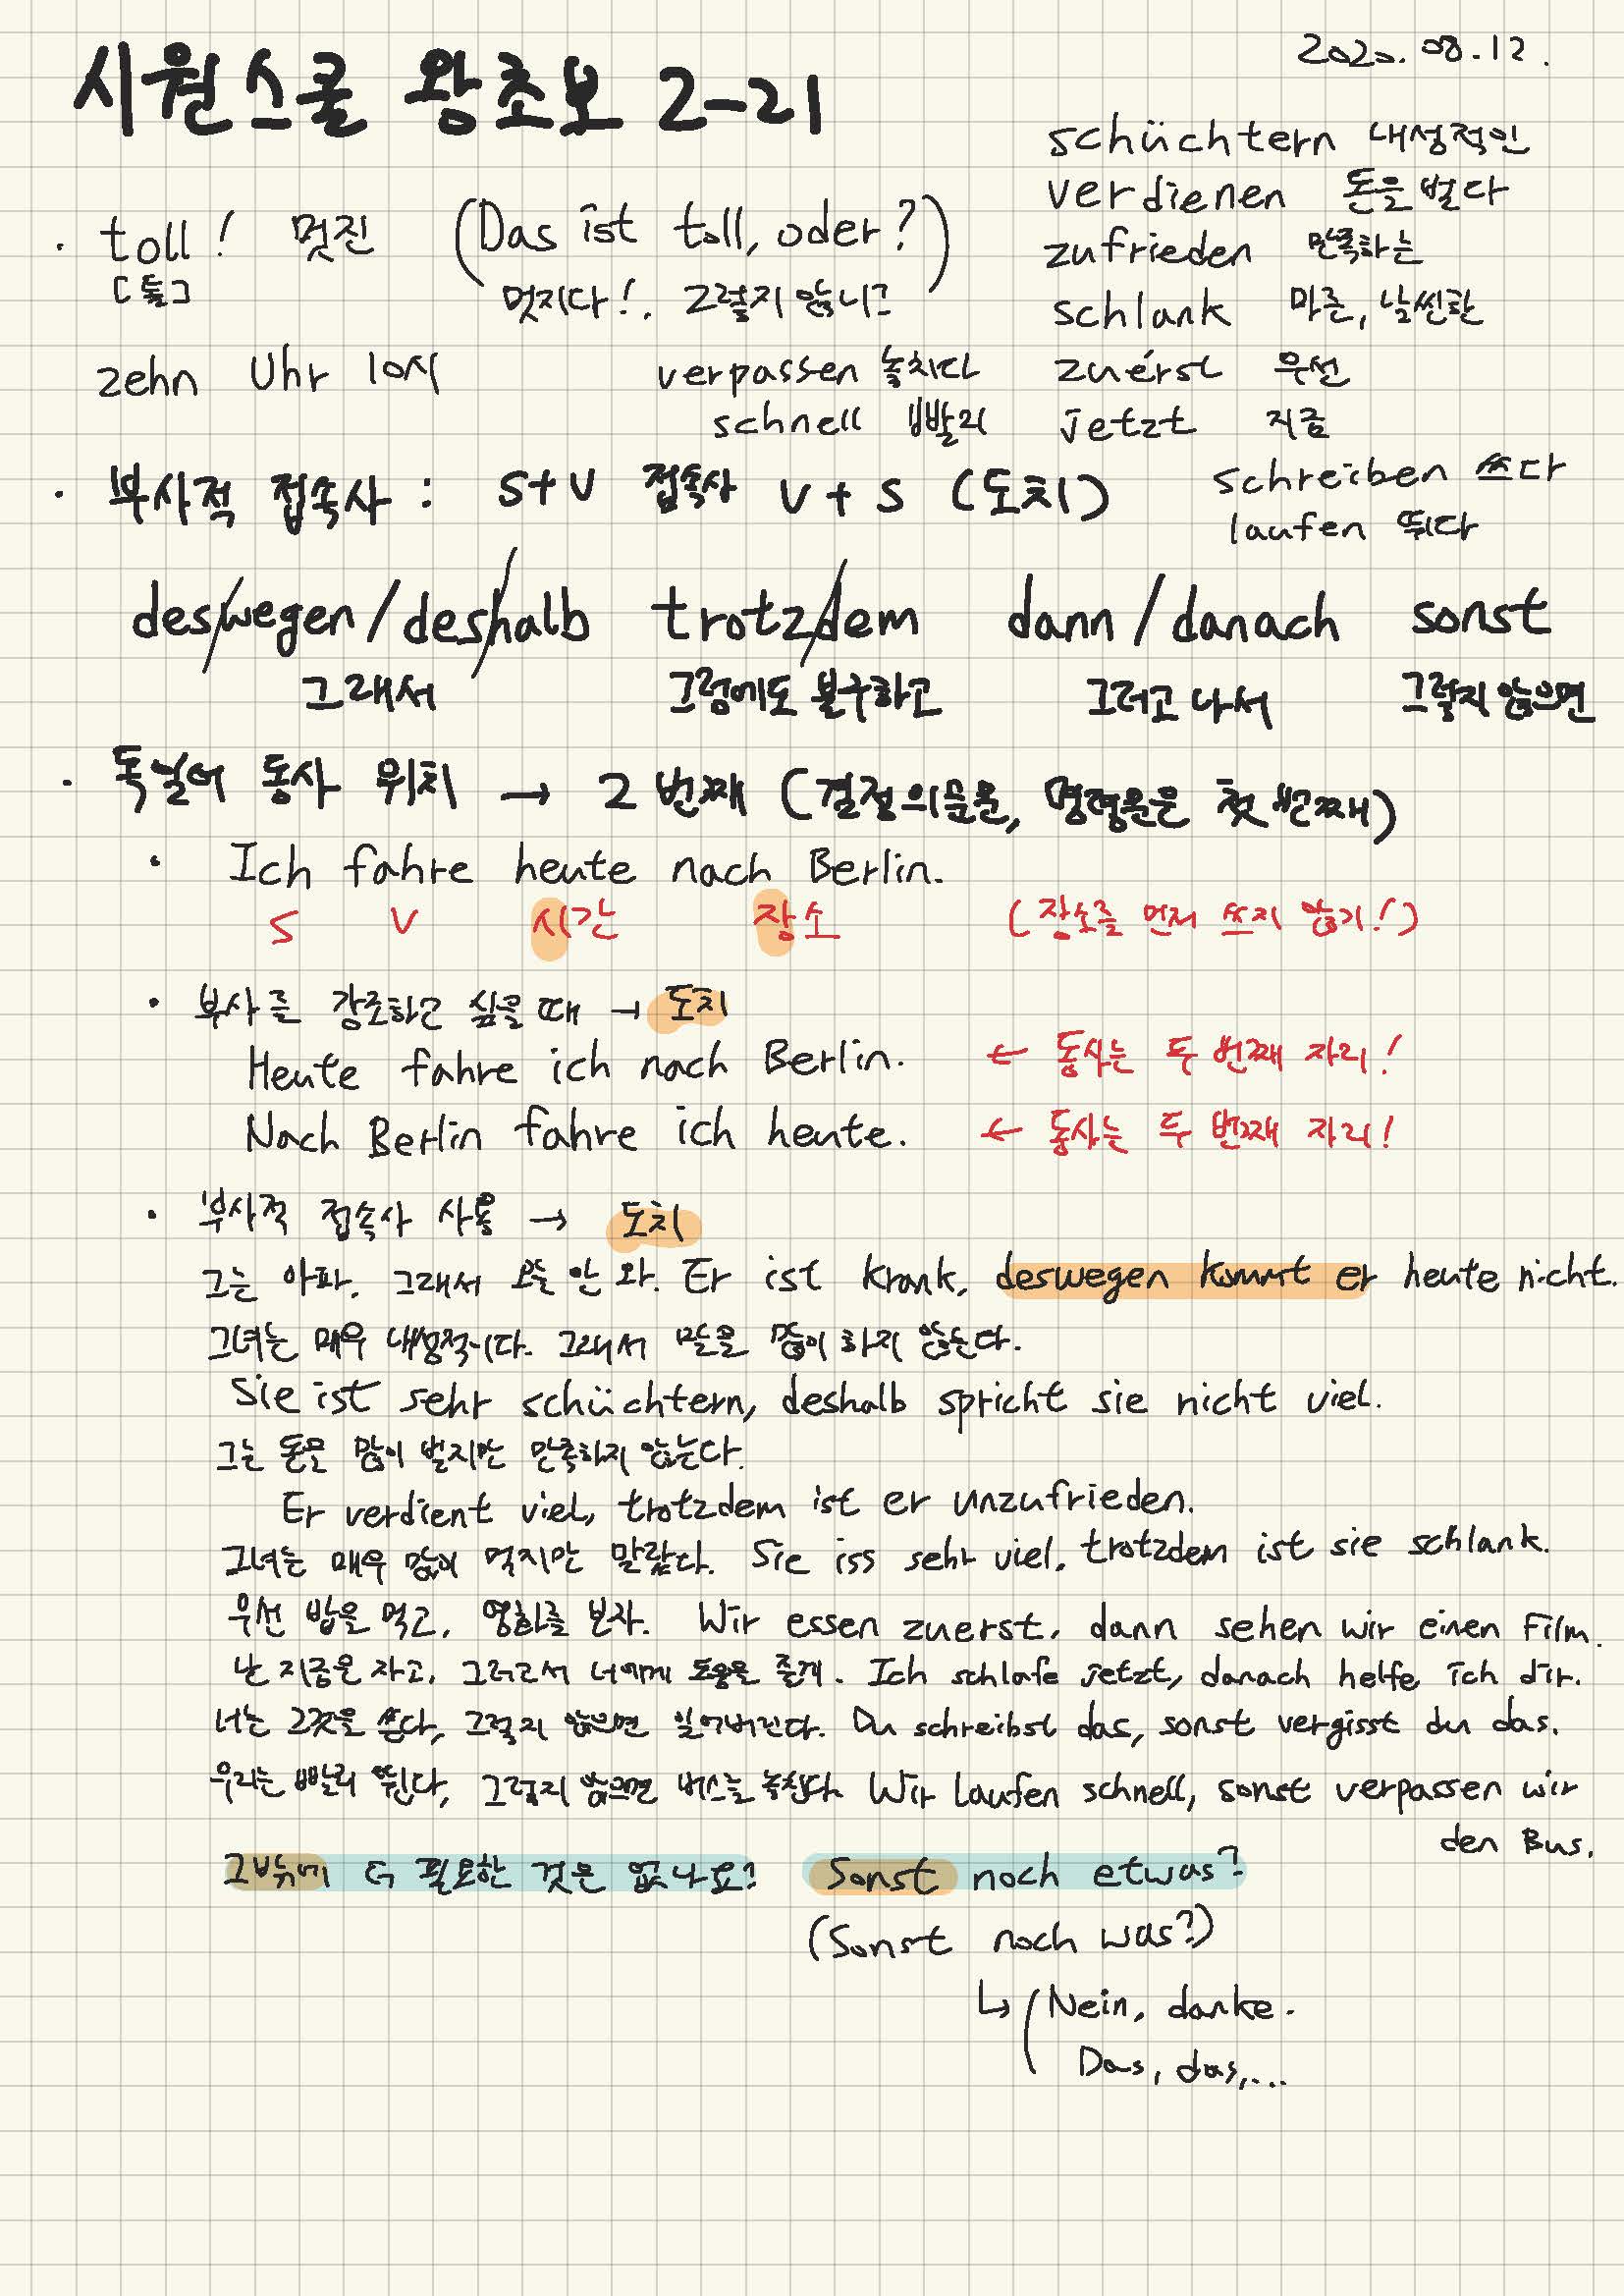 2020.08.12.
시원스쿨 왕초보 2-21
schüchtern 내성적인
verdienen 돈을 벌다
zufrieden 만족하는
schlank 마른, 날씬한
zuerst 우선
jetzt 지금
schreiben 쓰다
laufen 뛰다
· toll! 멋진 (Das ist toll, oder?)
[톨] 멋지다!. 그렇지 않니?
zehn Uhr 10시
verpassen 놓치다
schnell 빨리
· 부사적 접속사 : S+V 접속사 V+S (도치)
des/wegen/des/halb trotz/dem dann/danach sonst
그래서 그럼에도 불구하고 그러고 나서 그렇지 않으면
· 독일어 동사 위치 → 2번째 (결정의문문, 명령문은 첫번째)
· Ich fahre heute nach Berlin.
S V 시간 장소 (장소를 먼저 쓰지 않기!)
· 부사를 강조하고 싶을 때 → 도치
Heute fahre ich nach Berlin. ← 동사는 두 번째 자리!
Nach Berlin fahre ich heute. ← 동사는 두 번째 자리!
· 부사적 접속사 사용 → 도치
그는 아파. 그래서 오늘 안 와. Er ist krank, deswegen kommt er heute nicht.
그녀는 매우 내성적이다. 그래서 말을 많이 하지 않는다.
Sie ist sehr schüchtern, deshalb spricht sie nicht viel.
그는 돈을 많이 벌지만 만족하지 않는다.
Er verdient viel, trotzdem ist er unzufrieden.
그녀는 매우 많이 먹지만 말랐다. Sie iss sehr viel, trotzdem ist sie schlank.
우선 밥을 먹고, 영화를 보자. Wir essen zuerst, dann sehen wir einen Film.
난 지금은 자고, 그러고서 너에게 도움을 줄게. Ich schlafe jetzt, danach helfe ich dir.
너는 그것을 쓴다, 그렇지 않으면 잊어버린다. Du schreibst das, sonst vergisst du das.
우리는 빨리 뛴다, 그렇지 않으면 버스를 놓친다. Wir laufen schnell, sonst verpassen wir
den Bus.
그밖에 더 필요한 것은 없나요? Sonst noch etwas?
(Sonst noch was?)
↳ (Nein, danke.
Das, das,...